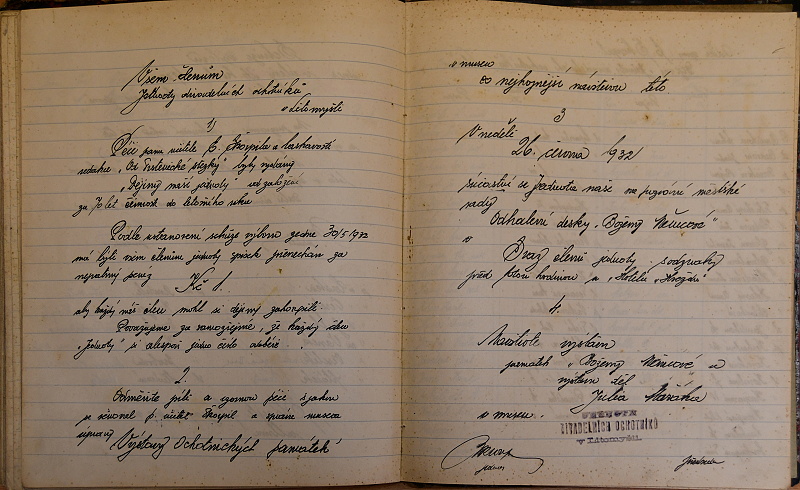 Všem členům
Jednoty divadelních ochotníků
v Litomyšli
1)
Péčí pana učitele E. Škopila a laskavostí
redakce „Od Trstenické stezky" byly vydány
„Dějiny naší jednoty od založení
za 70 let činnosti do letošního roku
Podle ustanovení schůze výboru ze dne 30/5 1932
má býti všem členům jednoty spisek přenechán za
nepatrný peníz
Kč 1.
aby každý náš člen mohl si dějiny zakoupiti.
Považujeme za samozřejmé, že každý člen
„Jednoty" si alespoň jedno číslo odebéře.
2.
Odměňte píli a vzornou péči s jakou
se věnoval p. učitel Škopil a správce musea
úpravy
Výstavy Ochotnických památek
v museu
co nejhojnější návštěvou této
3
V neděli
26. června 1932
súčastní se Jednota naše na pozvání městské
rady
Odhalení desky „Boženy Němcové"
v
Sraz členů jednoty s odznaky
před hodinou u „Hotelu
4.
Navštivte výstavu
památek „Boženy Němcové" a
výstavu děl
Julia Mařáka
v museu.
JEDNOTA
DIVADELNÍCH OCHOTNÍKŮ
v Litomyšli.